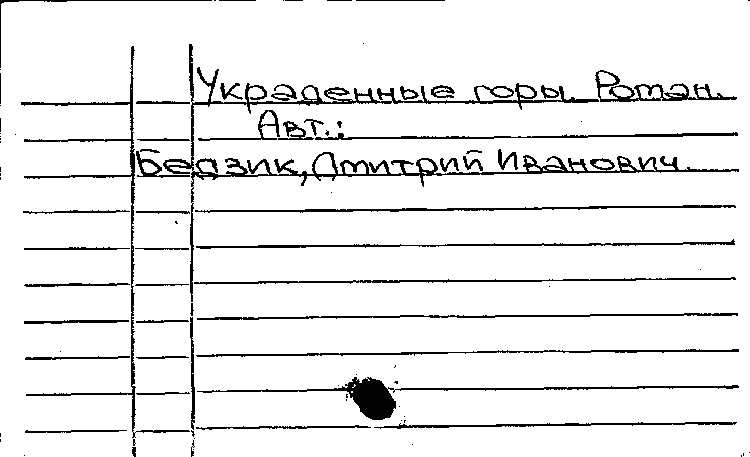 Украденные горы. Роман.
Авт.:
Бедзик, Дмитрий Иванович.